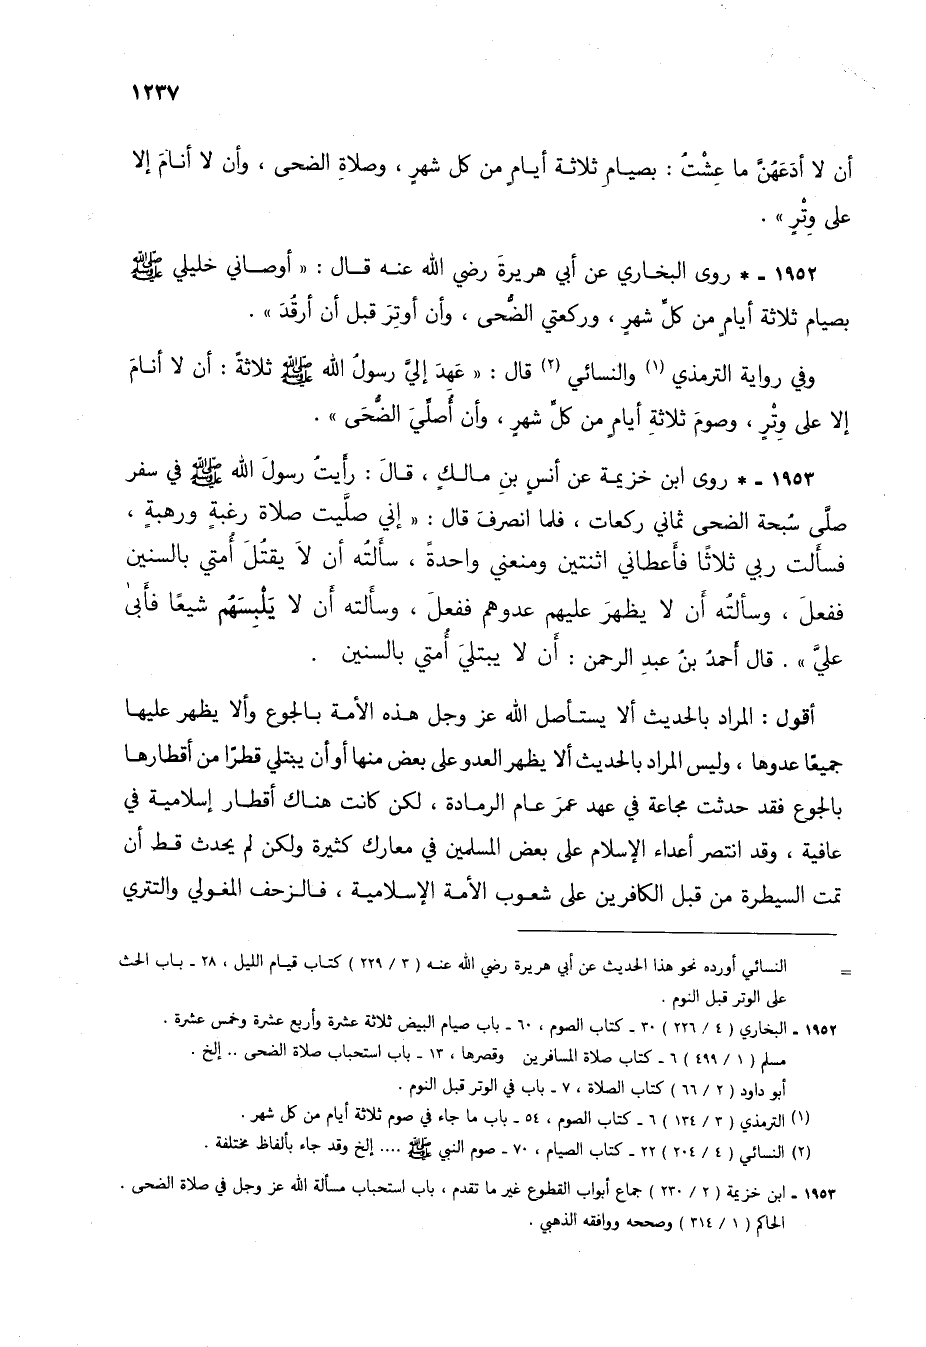 ١٢٣٧
أن لا أدَعَهُنَّ ما عِشْتُ : بصيامِ ثلاثة أيامٍ من كل شهرٍ ، وصلاةِ الضحى ، وأن لا أنامَ إلا
على وِتْرٍ » .
١٩٥٢ ـ * روى البخاري عن أبي هريرةَ رضي الله عنه قال : « أوصاني خليلي ﷺ
بصيام ثلاثة أيامٍ من كلِّ شهرٍ ، وركعتي الضُّحى ، وأن أوتِرَ قبل أن أرقُدَ » .
وفي رواية الترمذي (١) والنسائي (٢) قال : « عَهِدَ إليَّ رسولُ الله ﷺ ثلاثةً : أن لا أنامَ
إلا على وِتْرٍ ، وصومَ ثلاثةِ أيامٍ من كلِّ شهرٍ ، وأن أُصلِّيَ الضُّحَى » .
١٩٥٣ ـ * روى ابن خزيمة عن أنسِ بنِ مالكٍ ، قالَ : رأَيتُ رسولَ الله ﷺ في سفر
صلَّى سُبحة الضحى ثماني ركعات ، فلما انصرفَ قال : « إني صلَّيت صلاة رغبةٍ ورهبةٍ ،
فسأَلت ربي ثلاثًا فأَعطاني اثنتين ومنعني واحدةً ، سأَلتُه أن لاَ يقتُلَ أُمتي بالسنين
ففعلَ ، وسألتُه أَن لا يظهرَ عليهم عدوهم ففعلَ ، وسأَلته أَن لا يَلْبِسَهُم شيعًا فأَبىٰ
عليَّ » . قال أَحمدُ بنُ عبدِ الرحمن : أَن لا يبتليَ أُمتي بالسنين .
أقول : المراد بالحديث ألا يستأصل الله عز وجل هذه الأمة بالجوع وألا يظهر عليها
جميعًا عدوها ، وليس المراد بالحديث ألا يظهر العدو على بعض منها أو أن يبتلي قطرًا من أقطارها
بالجوع فقد حدثت مجاعة في عهد عمرَ عام الرمادة ، لكن كانت هناك أقطار إسلامية في
عافية ، وقد انتصر أعداء الإسلام على بعض المسلمين في معارك كثيرة ولكن لم يحدث قط أن
تمت السيطرة من قبل الكافرين على شعوب الأمة الإسلامية ، فالزحف المغولي والتتري
= النسائي أورده نحو هذا الحديث عن أبي هريرة رضي الله عنه ( ٣ / ٢٢٩ ) كتاب قيام الليل ، ٢٨ ـ باب الحث
على الوتر قبل النوم .
١٩٥٢ ـ البخاري ( ٤ / ٢٢٦ ) ٣٠ ـ كتاب الصوم ، ٦٠ ـ باب صيام البيض ثلاثة عشرة وأربع عشرة وخمس عشرة .
مسلم ( ١ / ٤٩٩ ) ٦ ـ كتاب صلاة المسافرين وقصرها ، ١٣ ـ باب استحباب صلاة الضحى .. إلخ .
أبو داود ( ٢ / ٦٦ ) كتاب الصلاة ، ٧ ـ باب في الوتر قبل النوم .
(١) الترمذي ( ٣ / ١٣٤ ) ٦ ـ كتاب الصوم ، ٥٤ ـ باب ما جاء في صوم ثلاثة أيام من كل شهر .
(٢) النسائي ( ٤ / ٢٠٤ ) ٢٢ ـ كتاب الصيام ، ٧٠ ـ صوم النبي ﷺ .... إلخ وقد جاء بألفاظ مختلفة .
١٩٥٣ ـ ابن خزيمة ( ٢ / ٢٣٠ ) جماع أبواب القطوع غير ما تقدم ، باب استحباب مسألة الله عز وجل في صلاة الضحى .
الحاكم ( ١ / ٣١٤ ) وصححه ووافقه الذهبي .